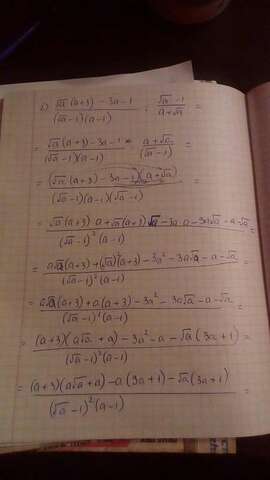 2) (√a (a+3) - 3a - 1) / ((√a - 1)(a - 1)) : (√a - 1) / (a + √a) =
= (√a (a+3) - 3a - 1) / ((√a - 1)(a - 1)) * (a + √a) / (√a - 1) =
= (√a (a+3) - 3a - 1)(a + √a) / ((√a - 1)(a - 1)(√a - 1)) =
= (√a (a+3) a + √a (a+3) √a - 3a · a - 3a√a - a - √a) / ((√a - 1)² (a - 1)) =
= (a√a (a+3) + (√a)² (a+3) - 3a² - 3a√a - a - √a) / ((√a - 1)² (a - 1)) =
= (a√a (a+3) + a (a+3) - 3a² - 3a√a - a - √a) / ((√a - 1)² (a - 1)) =
= ((a+3)(a√a + a) - 3a² - a - √a (3a + 1)) / ((√a - 1)² (a - 1)) =
= ((a+3)(a√a + a) - a (3a + 1) - √a (3a + 1)) / ((√a - 1)² (a - 1)) =